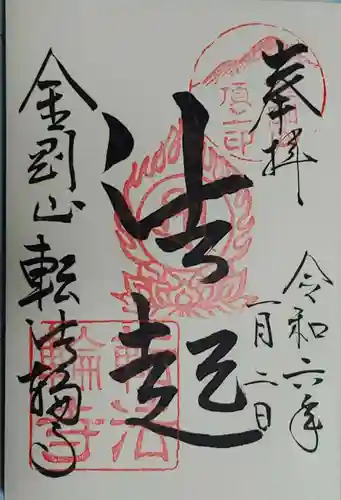 奉拝
令和六年
一月二日
法起
金剛山
転法輪寺
頂上印
転法
輪寺